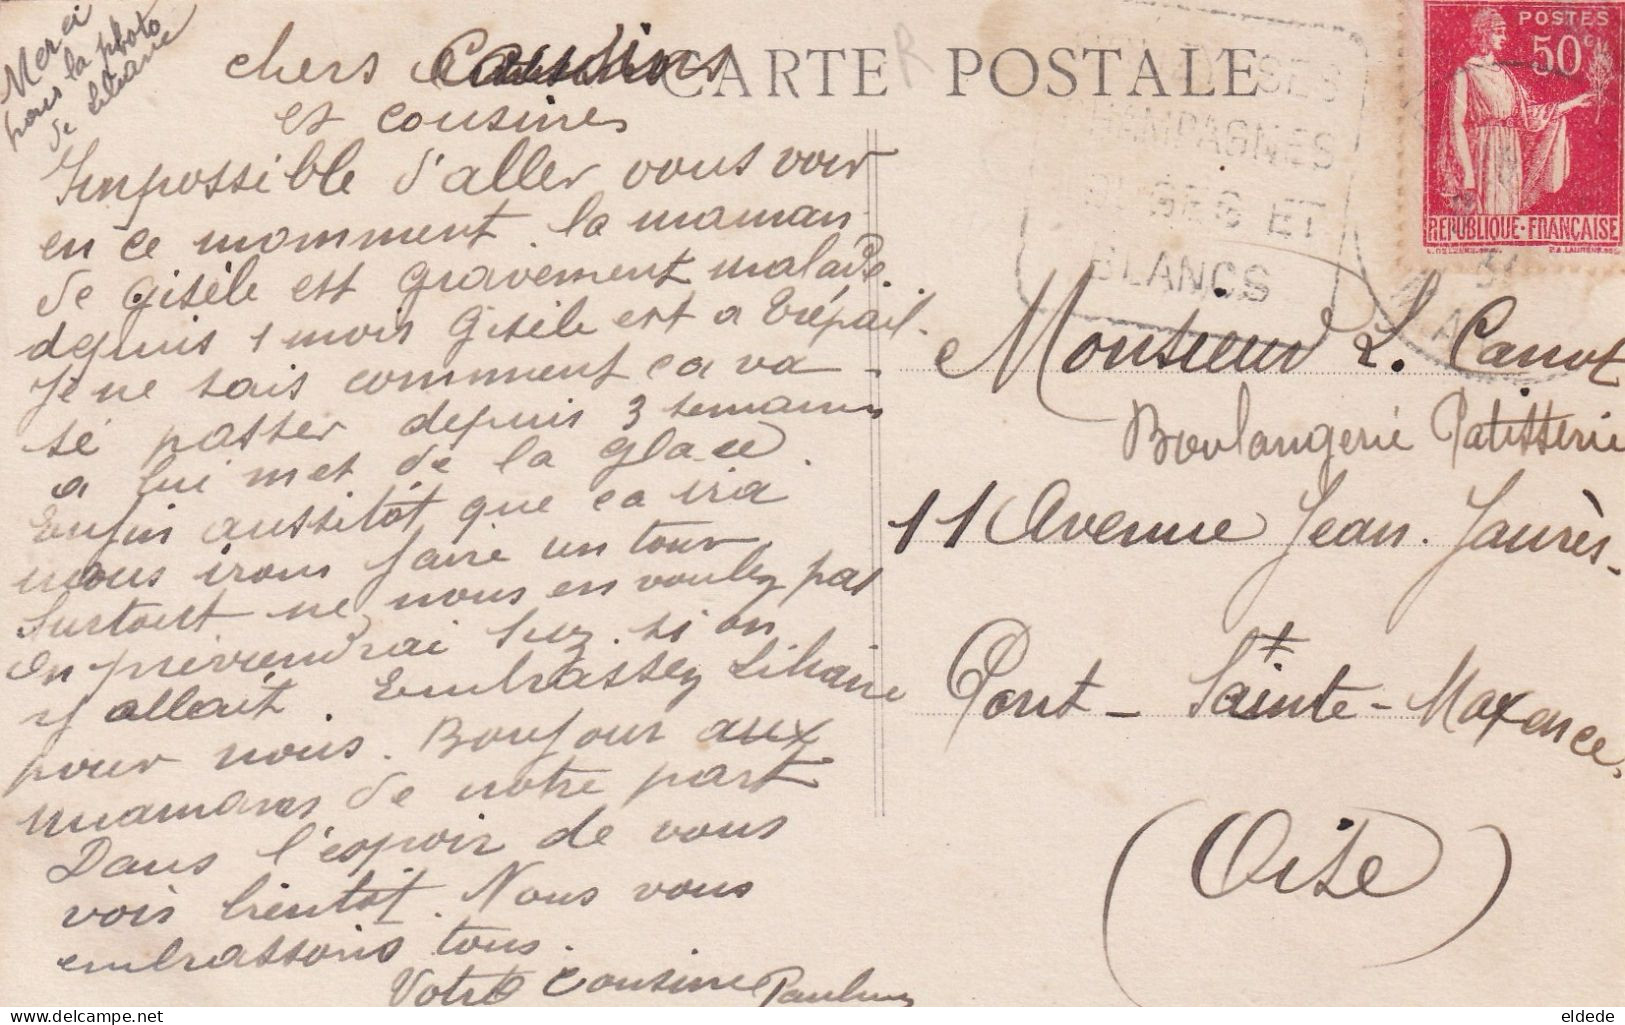 Merci
pour la photo
de Liliane
chers Cousins
et cousines
Impossible d'aller vous voir
en ce momment. la maman
de Gisèle est gravement malade
depuis 1 mois Gisèle est a Trépail.
Je ne sais comment ca va
se passer depuis 3 semaines
on lui met de la glace.
Enfin aussitôt que ca ira
nous irons faire un tour.
Surtout ne nous en voulez pas
on previendrai Suz. si on
y allait. Embrassez Liliane
pour nous. Bonjour aux
mamans de notre part
Dans l'espoir de vous
voir bientôt. Nous vous
embrassons tous.
Votre Cousine Pauline
CARTE POSTALE
R
CHAMPAGNES
ROUGES ET
BLANCS
POSTES
50c
REPUBLIQUE-FRANÇAISE
Monsieur L. Canot
Boulangerie Patisserie
11 Avenue Jean. Jaurès-
Pont-Sainte-Maxence,
(Oise)
delcampe.net
eldede